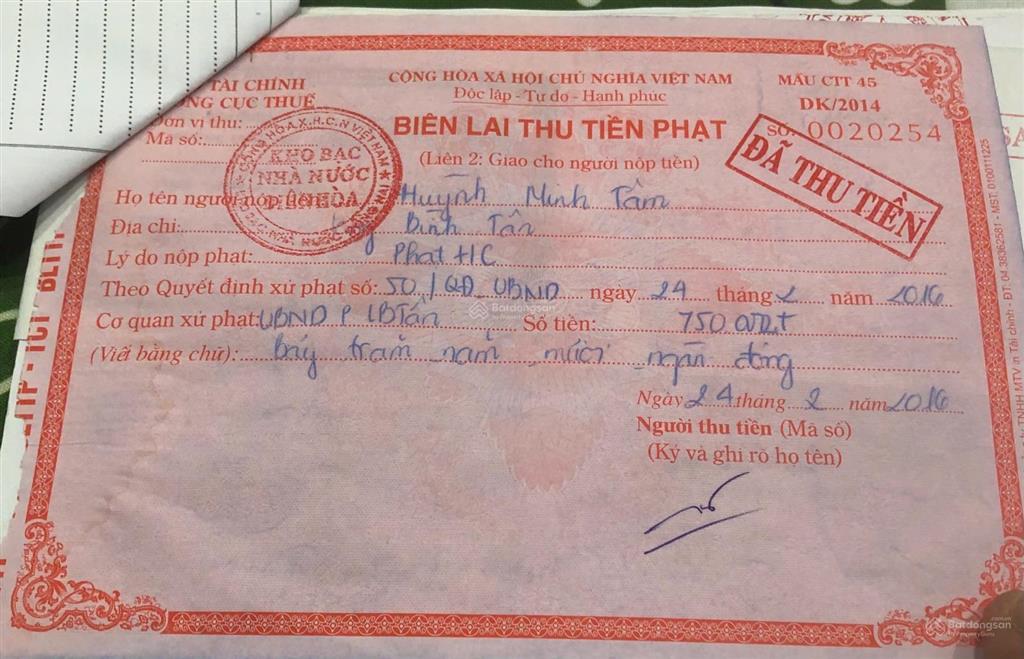 TÀI CHÍNH
CỤC THUẾ
CỘNG HÒA XÃ HỘI CHỦ NGHĨA VIỆT NAM
Độc lập - Tự do - Hạnh phúc
MẪU CTT 45
DK/2014
Đơn vị thu:
Mã số:
BIÊN LAI THU TIỀN PHẠT
SỐ: 0020254
(Liên 2: Giao cho người nộp tiền)
KHO BẠC
NHÀ NƯỚC
ĐÃ THU TIỀN
Họ tên người nộp tiền: Huỳnh Minh Tâm
Địa chỉ: Bình Tân
Lý do nộp phạt: Phạt HC
Theo Quyết định xử phạt số: 50/QĐ_UBND ngày 24 tháng 2 năm 2016
Cơ quan xử phạt: UBND P Số tiền: 750
(Viết bằng chữ): bảy trăm năm mươi ngàn đồng
Ngày 24 tháng 2 năm 2016
Người thu tiền (Mã số)
(Ký và ghi rõ họ tên)
Batdongsan
by PropertyGuru
Batdongsan
.com.vn
by PropertyGuru